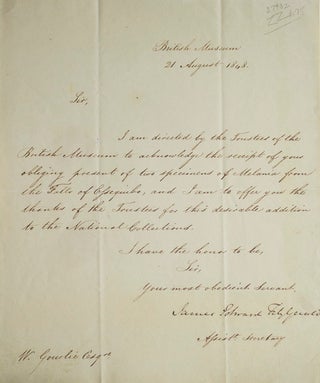 British Museum
21 August 1848.
Sir,
I am directed by the Trustees of the
British Museum to acknowledge the receipt of your
obliging present of two specimens of Melania from
the Falls of Essequibo, and I am to offer you the
thanks of the Trustees for this desirable addition
to the National Collections.
I have the honor to be,
Sir,
Your most obedient Servant,
James Edward FitzGerald
Assist. Secretary
W. Esqre